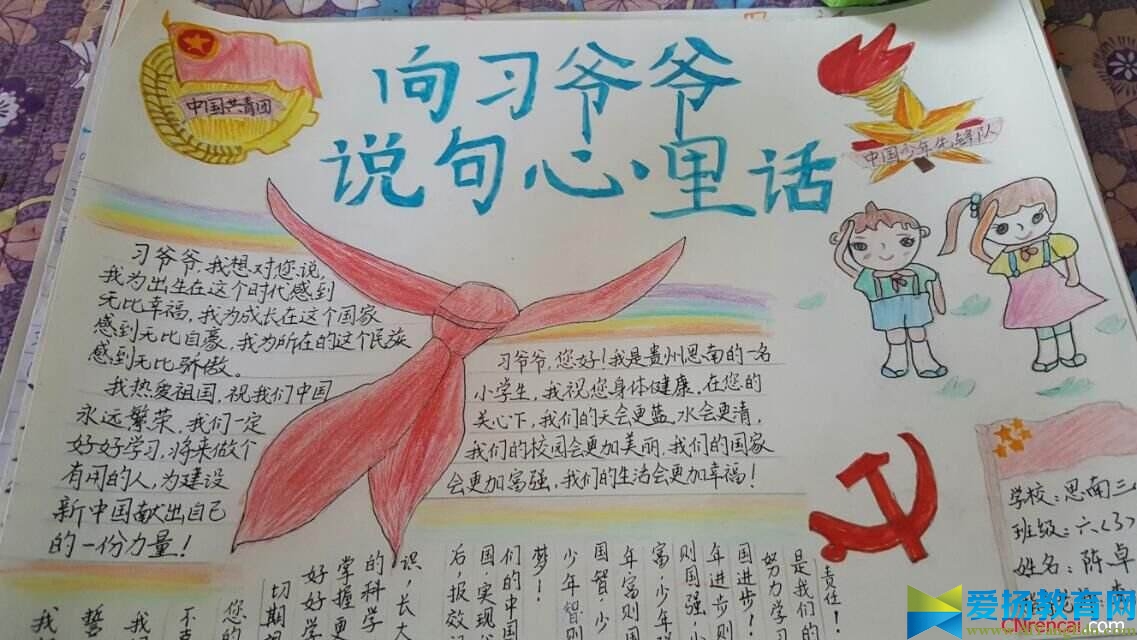 中国共青团
向习爷爷
说句心里话
中国少年先锋队
习爷爷,我想对您说,
我为出生在这个时代感到
无比幸福,我为成长在这个国家
感到无比自豪,我为所在的这个民族
感到无比骄傲。
我热爱祖国,祝我们中国
永远繁荣,我们一定
好好学习,将来做个
有用的人,为建设
新中国献出自己
的一份力量!
习爷爷,您好!我是贵州思南的一名
小学生,我祝您身体健康,在您的
关心下,我们的天会更蓝,水会更清,
我们的校园会更加美丽,我们的国家
会更加富强,我们的生活会更加幸福!
责任!
是我们的
努力学习
国进步!
年进步则
则国强,少
富,少年强
年富则国
国智,少
少年智则
梦!
们的中国
国实现
后,报效
识,长大
的科学
掌握更
好好学
切期
您的
不
我
誓
我
学校:思南三
班级:六(3)
姓名:陈卓
爱扬教育网
CNrencai.com